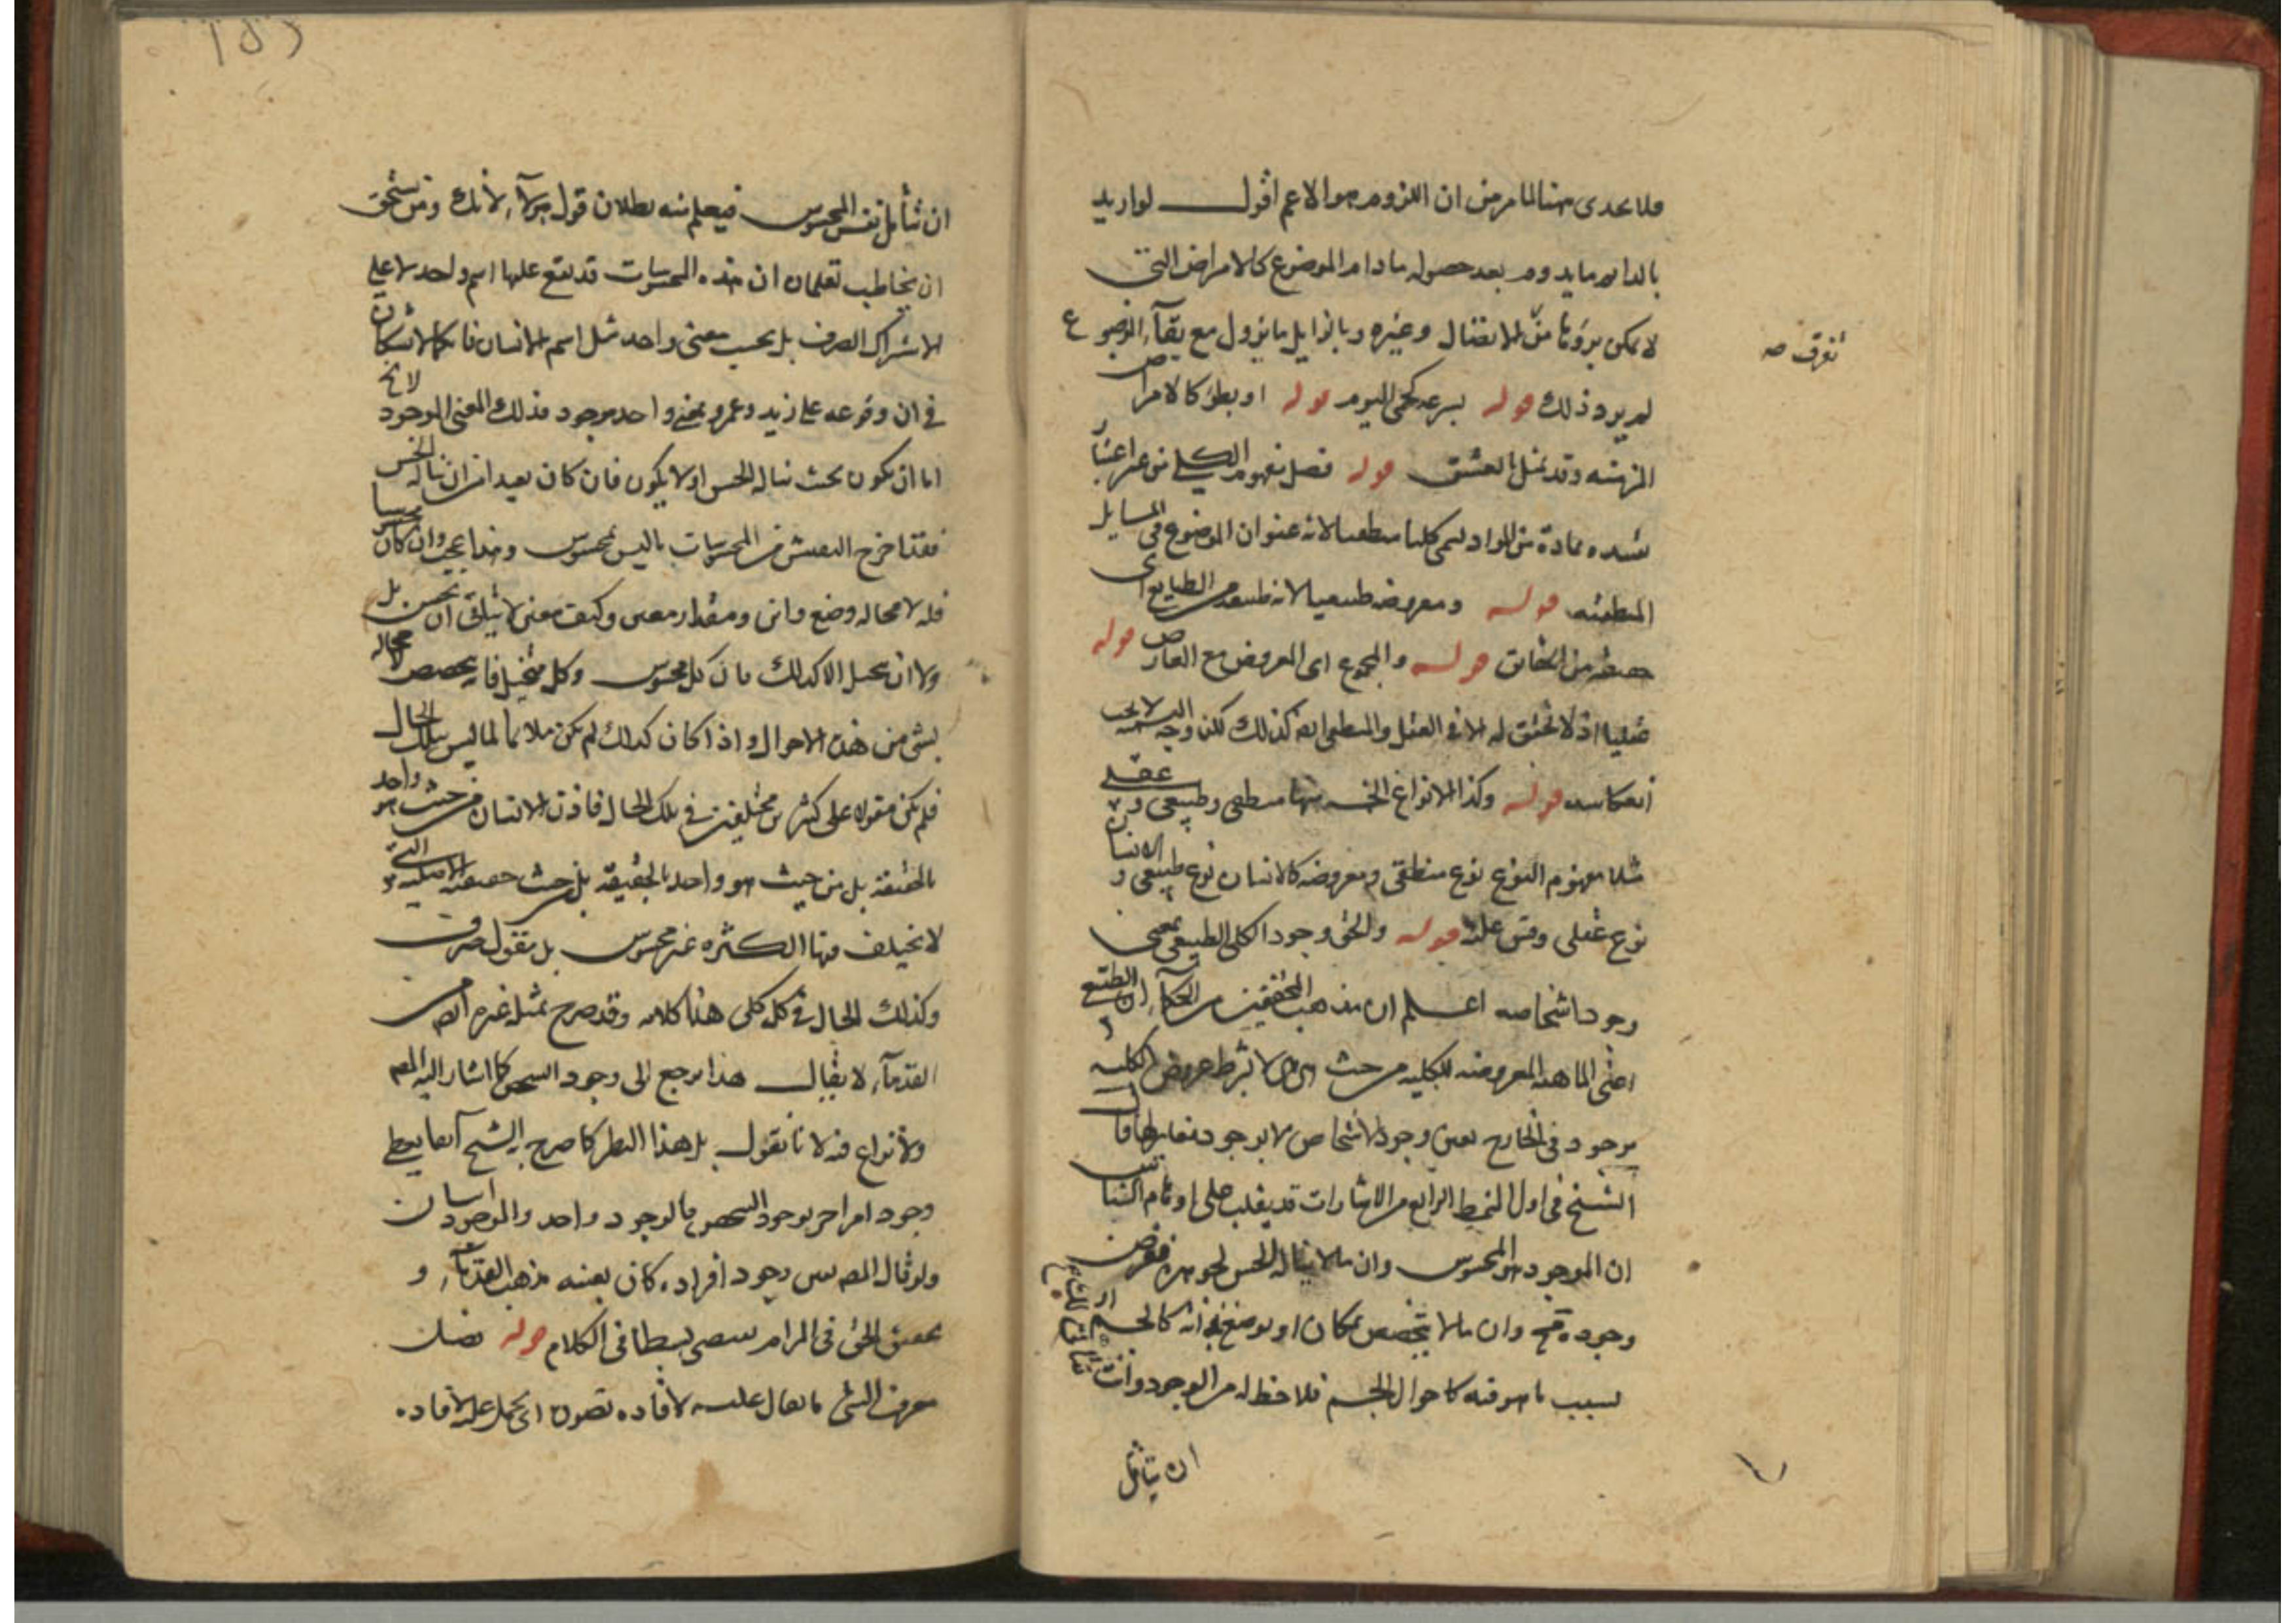 فلا يجدى هنا لما مر من ان اللزوم هو الاعم اقول لو اريد
بالدايم ما يدوم بعد حصوله ما دام الموضوع كالامراض التى
لا يمكن برؤها من الانفصال وغيره وبالزايل ما يزول مع بقآء الموضوع
تفرق صه
لم يرد ذلك قوله بسرعة كحمى اليوم قوله او بطؤ كالامراض
المزمنه وقد يمثل بالعشق قوله فصل مفهوم الكلى من غير اعتبار
تقييده بمادة من المواد ليسمى كليا منطقيا لانه عنوان الموضوع فى المسايل
المنطقيه قوله ومعروضه طبيعيا لانه طبيعه من الطبايع اى
حقيقه من الحقايق قوله والمجموع اى المعروض مع العارض قوله
عقليا اذ لا تحقق له الا فى العقل والمنطقى ايضا كذلك لكن وجه التسميه لا يجب
انعكاسه قوله وكذا الانواع الخمسه منها منطقى وطبيعى وعقلى
مثلا مفهوم النوع نوع منطقى ومعروضه كالانسان نوع طبيعى والانسان
نوع عقلى وقس عليه قوله والحق وجود الكلى الطبيعى بمعنى
وجود اشخاصه اعلم ان مذهب المحققين من الحكمآء ان الطبيعى
اعنى الماهيه المعروضه للكليه من حيث هى هى لا بشرط عروض الكليه
موجود فى الخارج بعين وجود الاشخاص لا بوجود مغاير لها قال
الشيخ فى اول النمط الرابع من الاشارات قد يغلب على اوهام الناس
ان الموجود هو المحسوس وان ما لا يناله الحس بجوهره ففرض
وجوده مح وان ما لا يتخصص بمكان او بوضع بذاته كالجسم او
بسبب ما هو فيه كاحوال الجسم فلا حظ له من الوجود وانت
ان يتأمل
ان تتأمل نفس المحسوس فيعلم منه بطلان قول هؤلآء لانك ومن يستحق
ان يخاطب تعلمان ان هذه المحسوسات قد يقع عليها اسم واحد لا على
الاشتراك الصرف بل بحسب معنى واحد مثل اسم الانسان فانكما لا تشكان
فى ان وقوعه على زيد وعمرو بمعنى واحد موجود فذلك المعنى الموجود لا يخ
اما ان يكون بحيث يناله الحس او لا يكون فان كان بعيدا من ان يناله الحس
فقد اخرج التفتيش من المحسوسات ما ليس بمحسوس وهذا عجب وان كان محسوسا
فله لا محاله وضع واين ومقدار معين وكيف معين لا يتأتى ان يحس بل
ولا ان يتخيل الا كذلك فان كل محسوس وكل متخيل فانه يتخصص لا محاله
بشئ من هذه الاحوال واذا كان كذلك لم يكن ملائما لما ليس بتلك الحال
فلم يكن مقولا على كثيرين مختلفين فى تلك الحال فاذن الانسان من حيث هو واحد
بالحقيقه بل من حيث هو واحد بالحقيقه بل من حيث حقيقته الاصليه التى
لا تختلف فيها الكثره غير محسوس بل معقول صرف
وكذلك الحال فى كل كلى هذا كلامه وقد صرح بمثله غيره ايضا من
القدمآء لا يقال هذا يرجع الى وجود الشخص كما اشار اليه المص
ولا نزاع فيه لانا نقول بل هذا النظر كما صرح به الشيخ انما يعطى
وجود امر اخر بوجود الشخص فالوجود واحد والموجود اثنان
ولو قال المص بعين وجود افراده كان بعينه مذهب القدمآء و
تحقيق الحق فى المرام يقتضى بسطا فى الكلام قوله فصل
معرف الشئ ما يقال عليه لافاده تصوره اى يحمل عليه لافاده